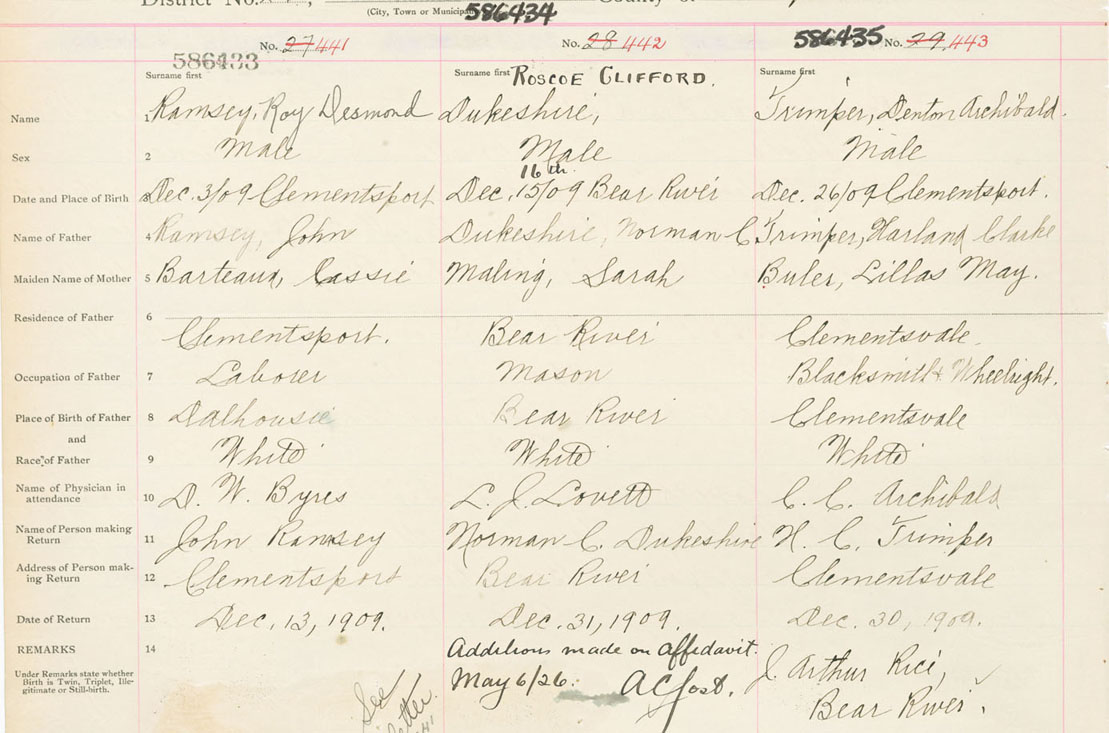 District No.
(City, Town or Municipa
586434
No. 27 441
No. 28 442
586435 No. 29 443
586433
Surname first
Surname first ROSCOE CLIFFORD.
Surname first
Name 1 Ramsey, Roy Desmond Dukeshire, Trimper, Denton Archibald.
Sex 2 Male Male Male
16th
Date and Place of Birth 3 Dec. 3/09 Clementsport Dec. 15/09 Bear River Dec. 26/09 Clementsport.
Name of Father 4 Ramsey, John Dukeshire, Norman C Trimper, Harland Clarke
Maiden Name of Mother 5 Barteaux, Cassie Maling, Sarah Buler, Lillas May.
Residence of Father 6
Clementsport. Bear River Clementsvale.
Occupation of Father 7 Laborer Mason Blacksmith & Wheelright.
Place of Birth of Father 8 Dalhousie Bear River Clementsvale
and
Race of Father 9 White White White
Name of Physician in
attendance 10 D. W. Byres L. J. Lovett C. C. Archibald
Name of Person making
Return 11 John Ramsey Norman C. Dukeshire H. C. Trimper
Address of Person mak-
ing Return 12 Clementsport Bear River Clementsvale
Date of Return 13 Dec. 13, 1909. Dec. 31, 1909. Dec. 30, 1909.
REMARKS 14 Additions made on affidavit. J. Arthur Rice,
Under Remarks state whether
Birth is Twin, Triplet, Ille-
gitimate or Still-birth.
May 6/26. A C Jost.
Bear River.
See
letter